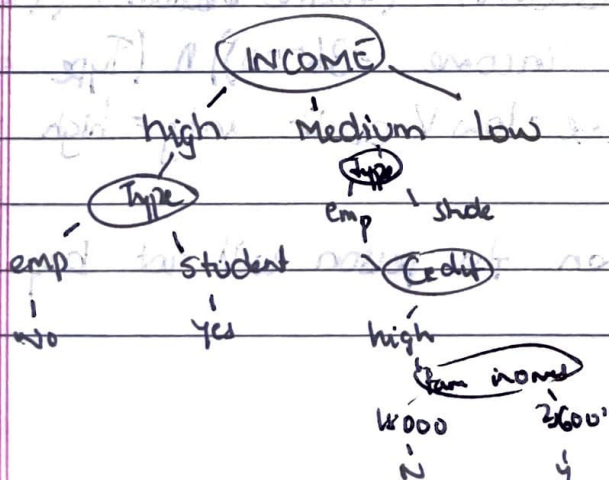 INCOME
high Medium Low
Type Type
emp stude
emp student Credit
No Yes high
income
N Y